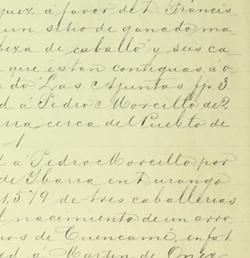 guez á favor de D. Francis
un sitio de ganado ma
beza de caballo y seis ca
que estan contiguas á o
do Las Apuntas fjs 3.
d á Pedro Morcillo de 2
rra cerca del Pueblo de
1
d á Pedro Morcillo por
de Ybarra en Durango
1,579 de tres caballerias
l nacimiento de un arro
nos de Cuencamé info. 1.
ed á Martin de